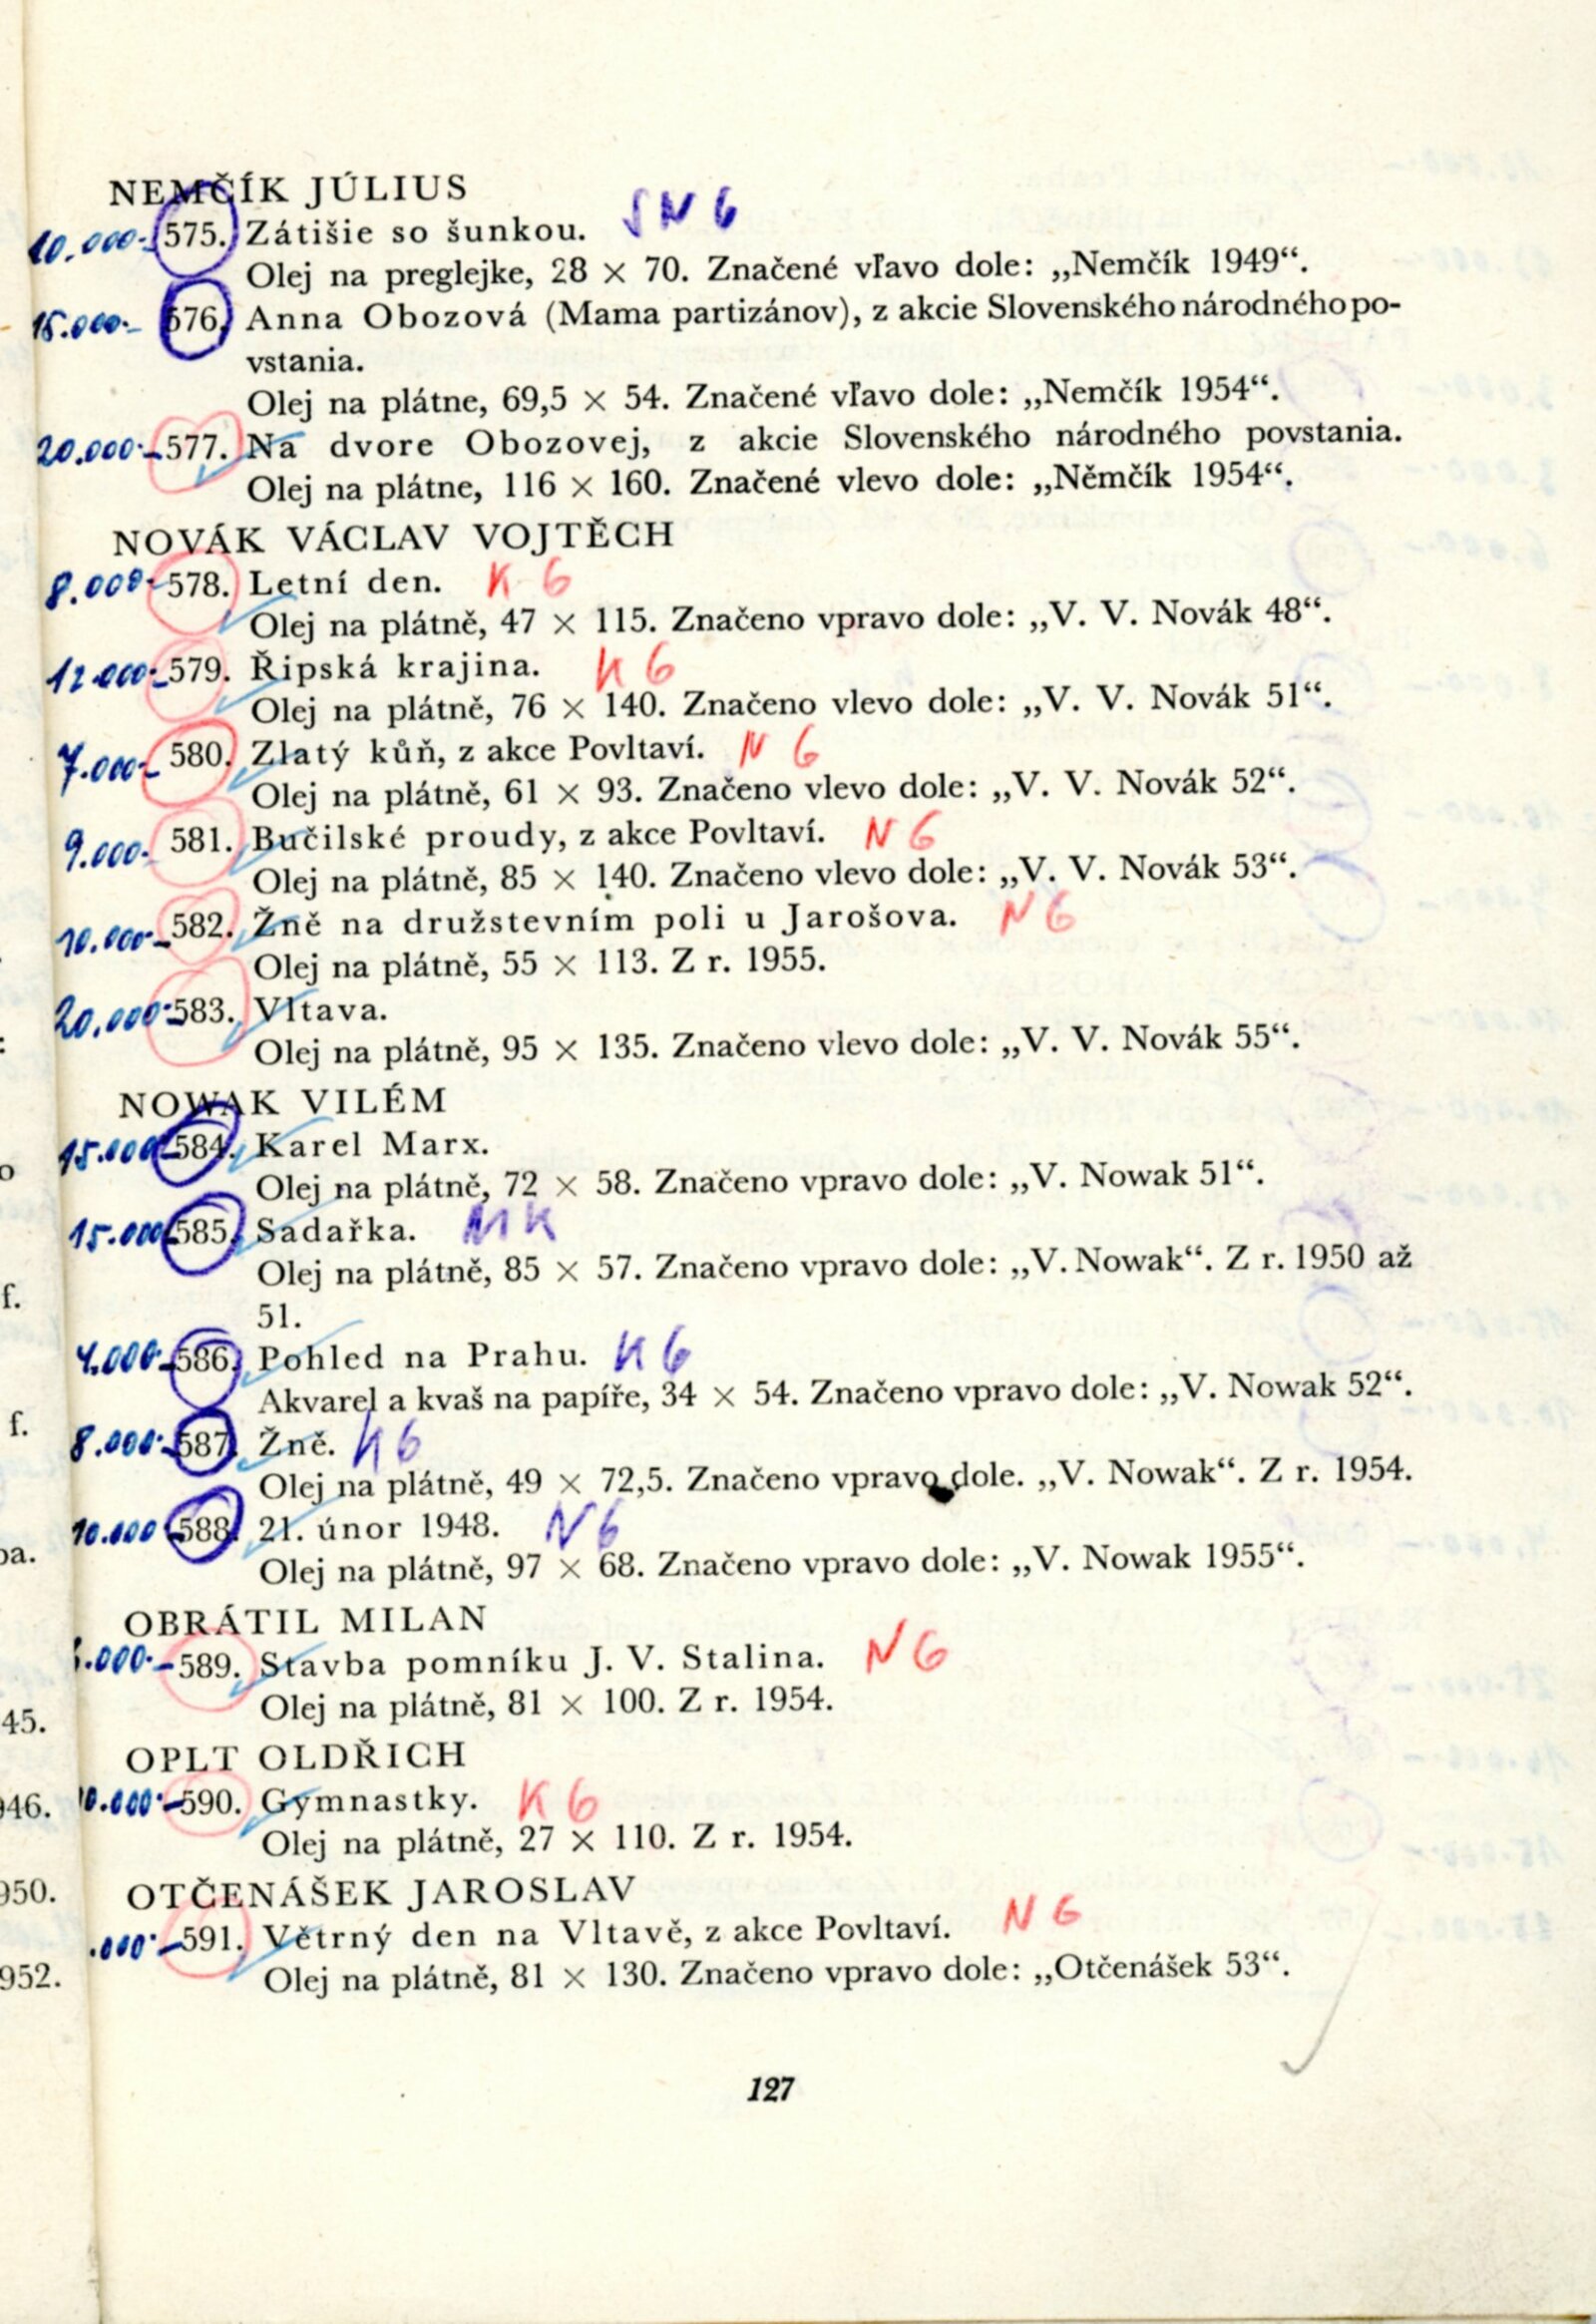 NEMČÍK JÚLIUS
10.000.- 575. Zátišie so šunkou. SNG
Olej na preglejke, 28 × 70. Značené vľavo dole: „Nemčík 1949“.
15.000.- 576. Anna Obozová (Mama partizánov), z akcie Slovenského národného po-
vstania.
Olej na plátne, 69,5 × 54. Značené vľavo dole: „Nemčík 1954“.
20.000.- 577. Na dvore Obozovej, z akcie Slovenského národného povstania.
Olej na plátne, 116 × 160. Značené vlevo dole: „Němčík 1954“.
NOVÁK VÁCLAV VOJTĚCH
8.000.- 578. Letní den. KG
Olej na plátně, 47 × 115. Značeno vpravo dole: „V. V. Novák 48“.
12.000.- 579. Řipská krajina. KG
Olej na plátně, 76 × 140. Značeno vlevo dole: „V. V. Novák 51“.
7.000.- 580. Zlatý kůň, z akce Povltaví. NG
Olej na plátně, 61 × 93. Značeno vlevo dole: „V. V. Novák 52“.
9.000.- 581. Bučilské proudy, z akce Povltaví. NG
Olej na plátně, 85 × 140. Značeno vlevo dole: „V. V. Novák 53“.
10.000.- 582. Žně na družstevním poli u Jarošova. NG
Olej na plátně, 55 × 113. Z r. 1955.
20.000.- 583. Vltava.
Olej na plátně, 95 × 135. Značeno vlevo dole: „V. V. Novák 55“.
NOWAK VILÉM
15.000.- 584. Karel Marx.
Olej na plátně, 72 × 58. Značeno vpravo dole: „V. Nowak 51“.
15.000.- 585. Sadařka. MK
Olej na plátně, 85 × 57. Značeno vpravo dole: „V. Nowak“. Z r. 1950 až
51.
4.000.- 586. Pohled na Prahu. KG
Akvarel a kvaš na papíře, 34 × 54. Značeno vpravo dole: „V. Nowak 52“.
8.000.- 587. Žně. KG
Olej na plátně, 49 × 72,5. Značeno vpravo dole. „V. Nowak“. Z r. 1954.
10.000 - 588. 21. únor 1948. NG
Olej na plátně, 97 × 68. Značeno vpravo dole: „V. Nowak 1955“.
OBRÁTIL MILAN
.000.- 589. Stavba pomníku J. V. Stalina. NG
Olej na plátně, 81 × 100. Z r. 1954.
OPLT OLDŘICH
10.000.- 590. Gymnastky. KG
Olej na plátně, 27 × 110. Z r. 1954.
OTČENÁŠEK JAROSLAV
.000.- 591. Větrný den na Vltavě, z akce Povltaví. NG
Olej na plátně, 81 × 130. Značeno vpravo dole: „Otčenášek 53“.
127